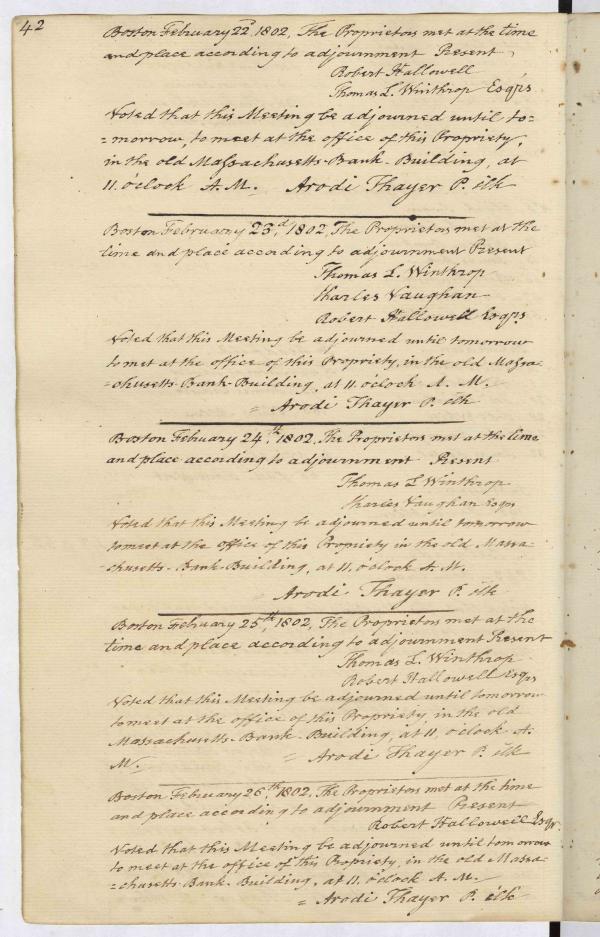 42
Boston February 22d, 1802, The Proprietors met at the time
and place according to adjournment Present
Robert Hallowell
Thomas L. Winthrop Esqrs
Voted that this Meeting be adjourned until to=
=morrow, to meet at the office of this Propriety,
in the old Massachusetts-Bank-Building, at
11. oclock A.M. Arodi Thayer P. clk
Boston February 23d, 1802, The Proprietors met at the
time and place according to adjournment Present
Thomas L. Winthrop
Charles Vaughan
Robert Hallowell Esqrs
Voted that this Meeting be adjourned until tomorrow
to met at the office of this Propriety, in the old Massa-
=chusetts-Bank-Building, at 11. oclock A. M.
= Arodi Thayer P. clk
Boston Febuary 24th, 1802, The Proprietors met at the time
and place according to adjournment Present
Thomas L Winthrop
Charles Vaughan Esqrs
Voted that this Meeting be adjourned until tomorrow
to meet at the office of this Propriety in the old Massa-
-chusetts-Bank-Building, at 11. oclock A. M.
Arodi Thayer P. clk
Boston February 25th, 1802, The Proprietors met at the
time and place according to adjournment Present
Thomas L. Winthrop
Robert Hallowell Esqrs
Voted that this Meeting be adjourned until tomorrow
to meet at the office of this Propriety, in the old
Massachusetts-Bank-Building, at 11, oclock A.
M. = Arodi Thayer P. clk
Boston February 26th, 1802, The Proprietors met at the time
and place according to adjournment Present
Robert Hallowell Esqr.
Voted that this Meeting be adjourned until tomorrow
to meet at the office of this Propriety, in the old Massa-
=chusetts-Bank-Building, at 11. oclock A. M.
= Arodi Thayer P. clk